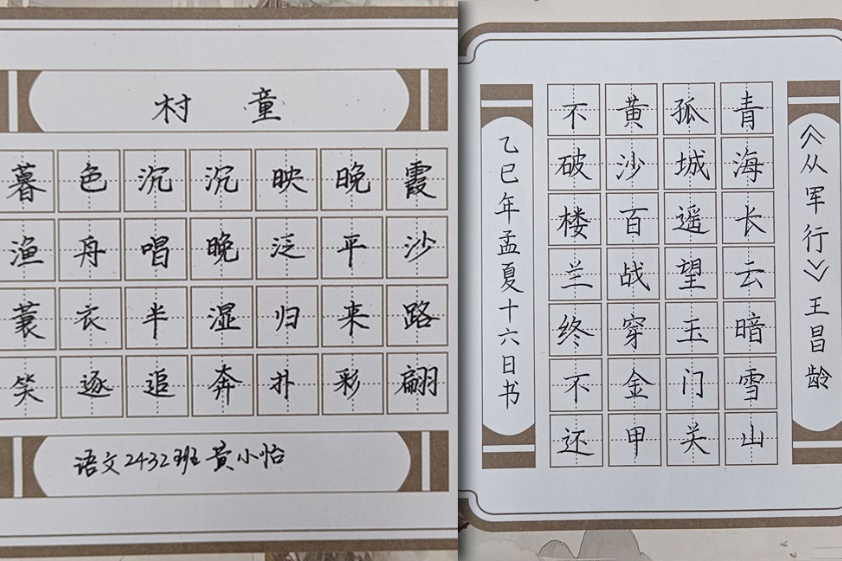 村童
暮色沉沉映晚霞
渔舟唱晚泛平沙
蓑衣半湿归来路
笑逐追奔扑彩翩
语文2432班黄小怡
《从军行》王昌龄
青海长云暗雪山
孤城遥望玉门关
黄沙百战穿金甲
不破楼兰终不还
乙巳年孟夏十六日书